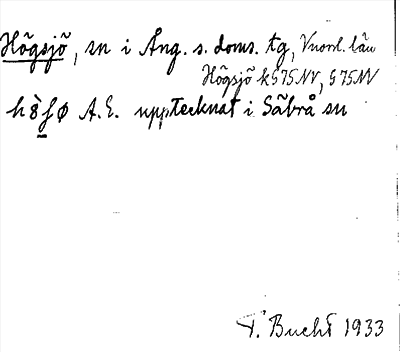 Högsjö, sn i Ång. s. doms. tg, Vnorrl. län
Högsjö k G75NV, G75NV
A. E. upptecknat i Säbrå sn
T. Bucht 1933